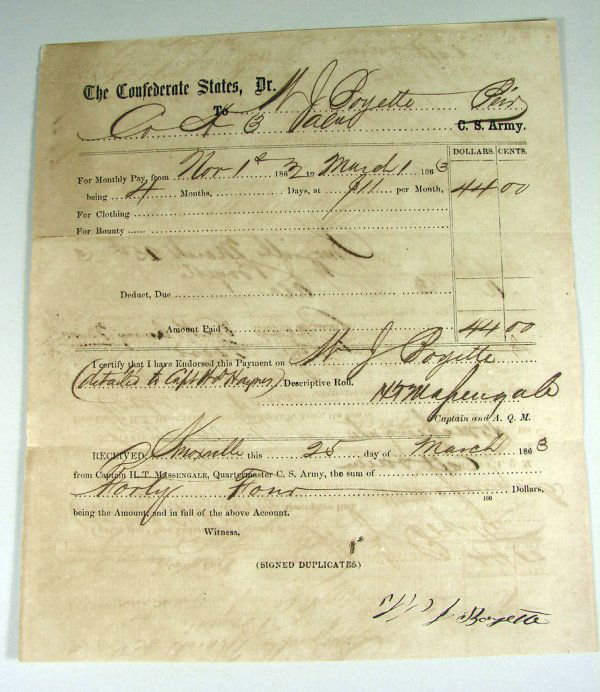 The Confederate States, Dr.
W J Boyette
To
Co 3 C. S. Army.
DOLLARS. CENTS.
For Monthly Pay, from Nov 1st 1862 to March 1 1863
being 4 Months, Days, at $11 per Month, 44 00
For Clothing
For Bounty
Deduct, Due
Amount Paid 44 00
I certify that I have Endorsed this Payment on W J Boyette
(detailed to Capt Haynes) Descriptive Roll.
H T Massengale
Captain and A. Q. M.
RECEIVED, Knoxville this 25 day of March 1863
from Captain H. T. MASSENGALE, Quartermaster C. S. Army, the sum of
Forty Four 100 Dollars,
being the Amount, and in full of the above Account.
Witness,
(SIGNED DUPLICATES)
W J Boyette